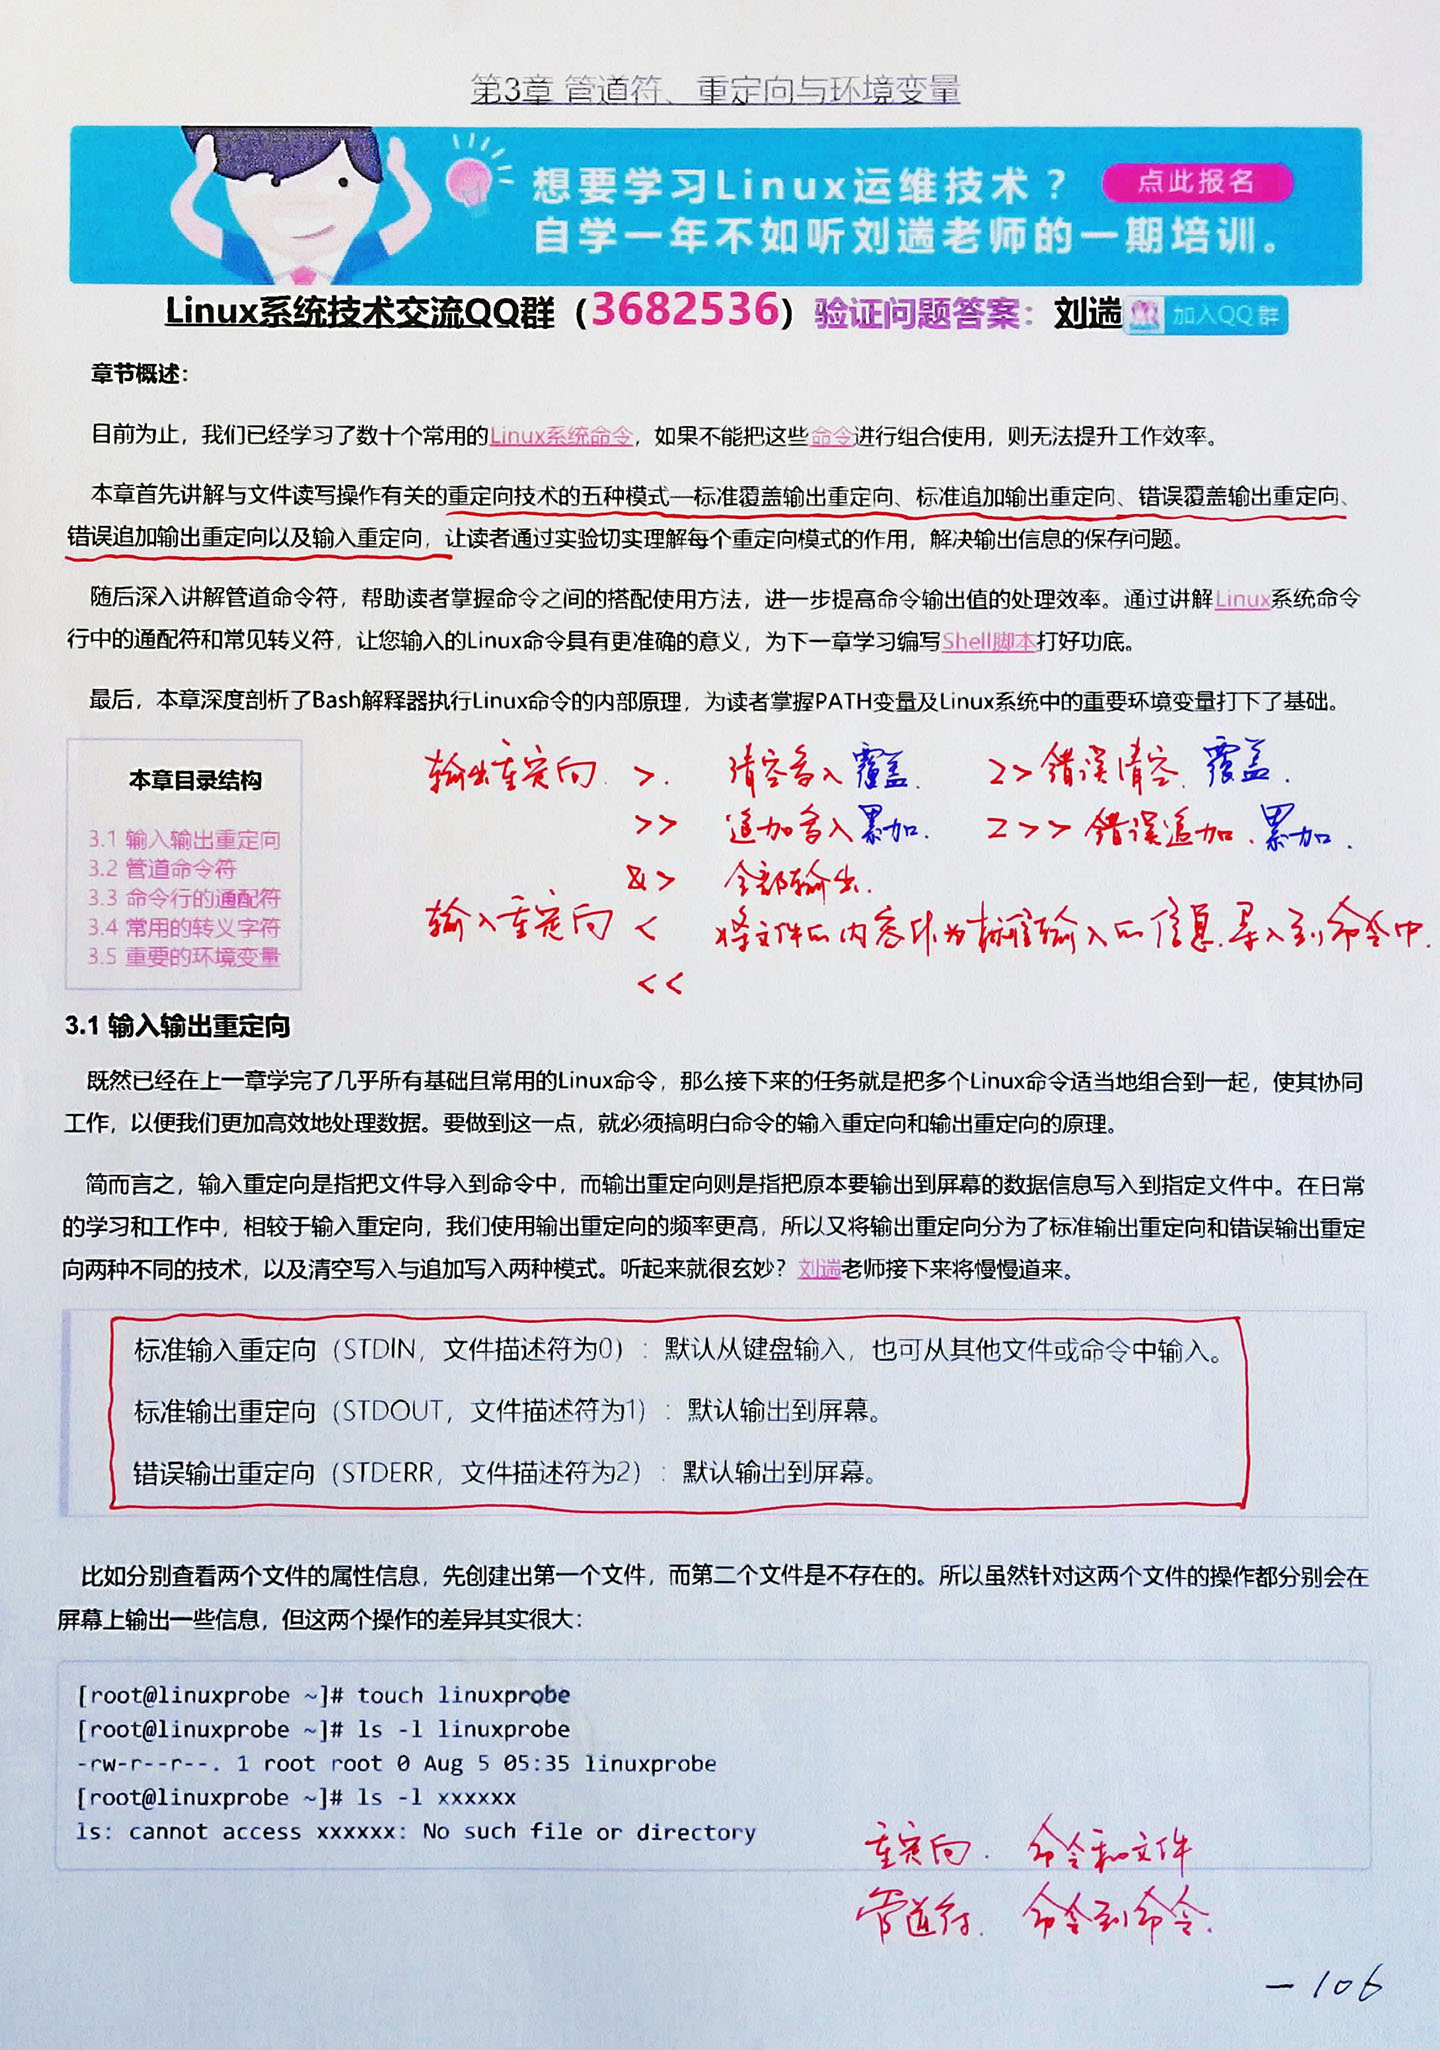 第3章 管道符、重定向与环境变量
想要学习Linux运维技术？ 点此报名
自学一年不如听刘遄老师的一期培训。
Linux系统技术交流QQ群（3682536）验证问题答案：刘遄 加入QQ群
章节概述：
目前为止，我们已经学习了数十个常用的Linux系统命令，如果不能把这些命令进行组合使用，则无法提升工作效率。
本章首先讲解与文件读写操作有关的重定向技术的五种模式—标准覆盖输出重定向、标准追加输出重定向、错误覆盖输出重定向、
错误追加输出重定向以及输入重定向，让读者通过实验切实理解每个重定向模式的作用，解决输出信息的保存问题。
随后深入讲解管道命令符，帮助读者掌握命令之间的搭配使用方法，进一步提高命令输出值的处理效率。通过讲解Linux系统命令
行中的通配符和常见转义符，让您输入的Linux命令具有更准确的意义，为下一章学习编写Shell脚本打好功底。
最后，本章深度剖析了Bash解释器执行Linux命令的内部原理，为读者掌握PATH变量及Linux系统中的重要环境变量打下了基础。
本章目录结构
3.1 输入输出重定向
3.2 管道命令符
3.3 命令行的通配符
3.4 常用的转义字符
3.5 重要的环境变量
输出重定向 >. 清空写入 覆盖. 2> 错误清空. 覆盖.
>> 追加写入 累加. 2>> 错误追加. 累加.
&> 全部输出.
输入重定向 < 将文件的内容作为标准输入的信息.导入到命令中.
<<
3.1 输入输出重定向
既然已经在上一章学完了几乎所有基础且常用的Linux命令，那么接下来的任务就是把多个Linux命令适当地组合到一起，使其协同
工作，以便我们更加高效地处理数据。要做到这一点，就必须搞明白命令的输入重定向和输出重定向的原理。
简而言之，输入重定向是指把文件导入到命令中，而输出重定向则是指把原本要输出到屏幕的数据信息写入到指定文件中。在日常
的学习和工作中，相较于输入重定向，我们使用输出重定向的频率更高，所以又将输出重定向分为了标准输出重定向和错误输出重定
向两种不同的技术，以及清空写入与追加写入两种模式。听起来就很玄妙？刘遄老师接下来将慢慢道来。
标准输入重定向（STDIN，文件描述符为0）：默认从键盘输入，也可从其他文件或命令中输入。
标准输出重定向（STDOUT，文件描述符为1）：默认输出到屏幕。
错误输出重定向（STDERR，文件描述符为2）：默认输出到屏幕。
比如分别查看两个文件的属性信息，先创建出第一个文件，而第二个文件是不存在的。所以虽然针对这两个文件的操作都分别会在
屏幕上输出一些信息，但这两个操作的差异其实很大：
[root@linuxprobe ~]# touch linuxprobe
[root@linuxprobe ~]# ls -l linuxprobe
-rw-r--r--. 1 root root 0 Aug 5 05:35 linuxprobe
[root@linuxprobe ~]# ls -l xxxxxx
ls: cannot access xxxxxx: No such file or directory
重定向. 命令和文件
管道符. 命令到命令.
—106